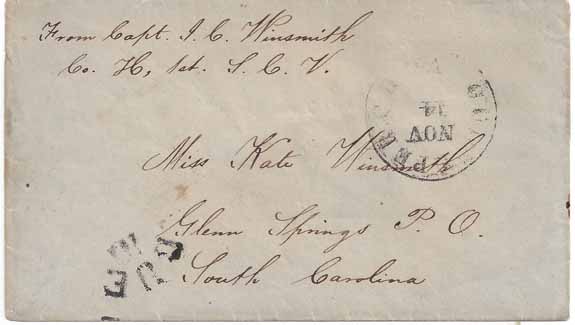 From Capt. J. C. Winsmith
Co. H, 1st. S. C. V.
14
NOV
Miss Kate Winsmith
Glenn Springs P. O.
South Carolina